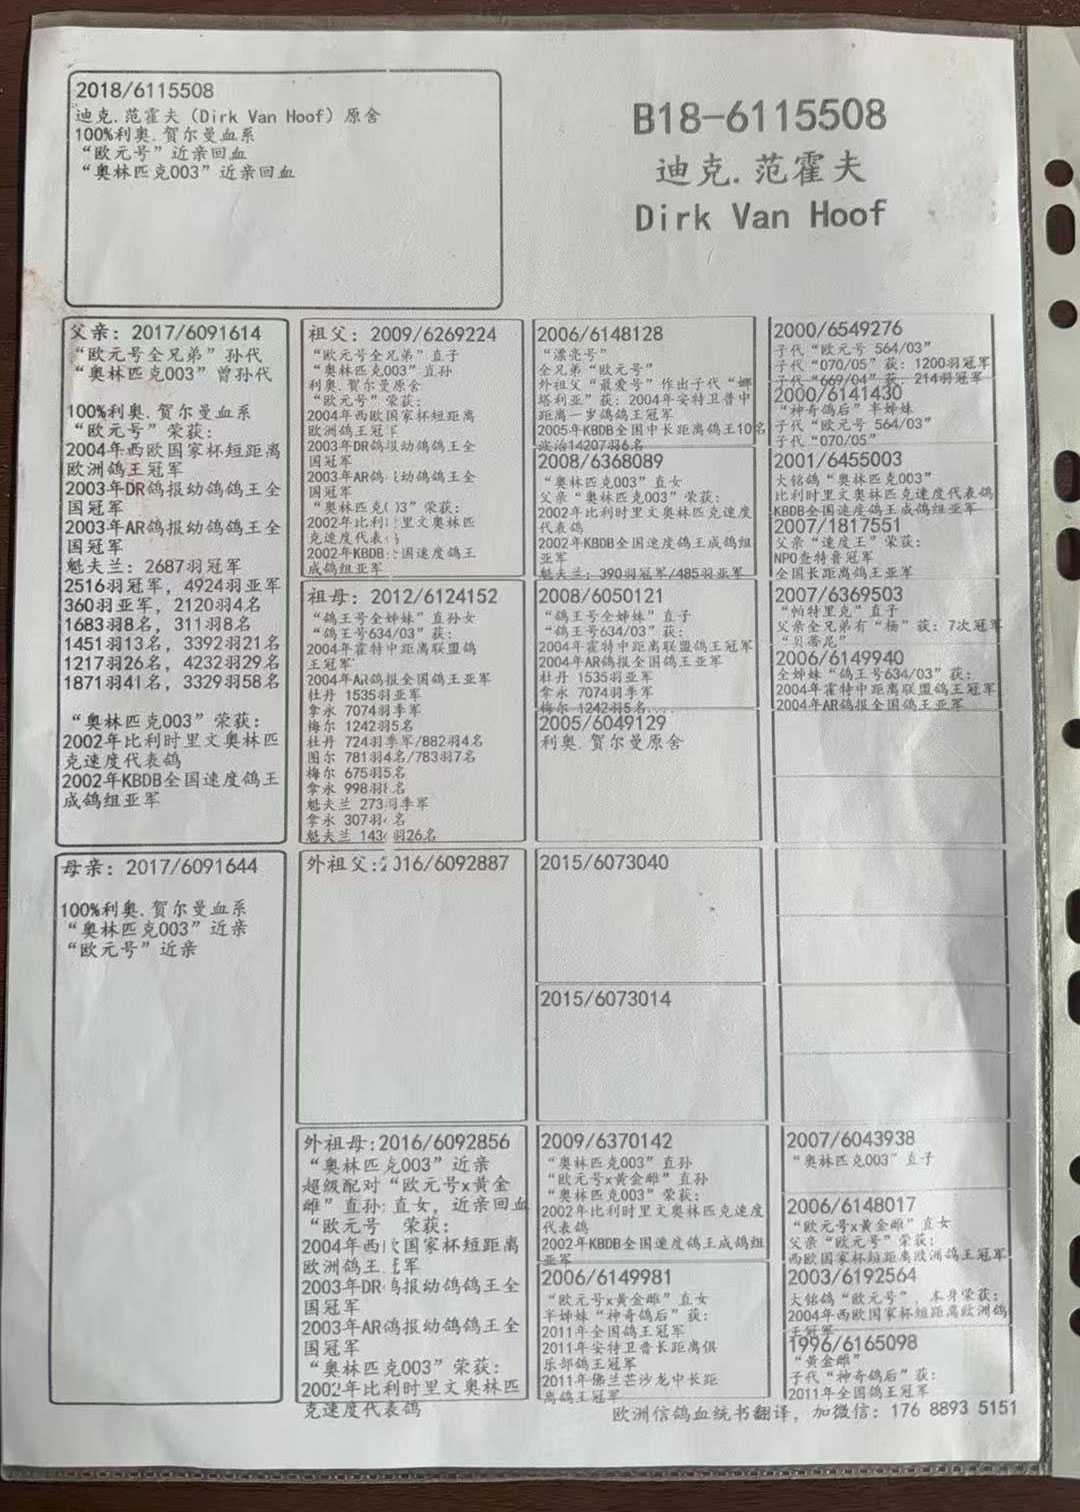 2018/6115508
迪克.范霍夫（Dirk Van Hoof）原舍
100%利奥.贺尔曼血系
“欧元号”近亲回血
“奥林匹克003”近亲回血
B18-6115508
迪克.范霍夫
Dirk Van Hoof
父亲: 2017/6091614
“欧元号全兄弟”孙代
“奥林匹克003”曾孙代
100%利奥.贺尔曼血系
“欧元号”荣获:
2004年西欧国家杯短距离
欧洲鸽王冠军
2003年DR鸽报幼鸽鸽王全
国冠军
2003年AR鸽报幼鸽鸽王全
国冠军
魁夫兰: 2687羽冠军
2516羽冠军, 4924羽亚军
360羽亚军, 2120羽4名
1683羽8名, 311羽8名
1451羽13名, 3392羽21名
1217羽26名, 4232羽29名
1871羽41名, 3329羽58名
“奥林匹克003”荣获:
2002年比利时里文奥林匹
克速度代表鸽
2002年KBDB全国速度鸽王
成鸽组亚军
祖父: 2009/6269224
“欧元号全兄弟”直子
“奥林匹克003”直孙
利奥.贺尔曼原舍
“欧元号”荣获:
2004年西欧国家杯短距离
欧洲鸽王冠军
2003年DR鸽报幼鸽鸽王全
国冠军
2003年AR鸽 幼鸽鸽王全
国冠军
“奥林匹克 03”荣获:
2002年比利 里文奥林匹
克速度代表
2002年KBDB 国速度鸽王
成鸽组亚军
祖母: 2012/6124152
“鸽王号全姊妹”直孙女
“鸽王号634/03”获:
2004年霍特中距离联盟鸽
王冠军
2004年AR鸽报全国鸽王亚军
牡丹 1535羽亚军
拿永 7074羽季军
梅尔 1242羽5名
牡丹 724羽季军/882羽4名
图尔 781羽4名/783羽7名
梅尔 675羽5名
拿永 998羽 名
魁夫兰 273羽季军
拿永 307羽 名
魁夫兰 143 羽26名
2006/6148128
“漂亮号”
全兄弟“欧元号”
外祖父“最爱号”作出子代“娜
塔利亚”获: 2004年安特卫普中
距离一岁鸽鸽王冠军
2005年KBDB全国中长距离鸽王10名
波治14207羽6名
2008/6368089
“奥林匹克003”直女
父亲“奥林匹克003”荣获:
2002年比利时里文奥林匹克速度
代表鸽
2002年KBDB全国速度鸽王成鸽组
亚军
魁夫兰: 390羽冠军/485羽亚军
2008/6050121
“鸽王号全姊妹”直子
“鸽王号634/03”获:
2004年霍特中距离联盟鸽王冠军
2004年AR鸽报全国鸽王亚军
牡丹 1535羽亚军
拿永 7074羽季军
梅尔 1242羽5名....
2005/6049129
利奥.贺尔曼原舍
2000/6549276
子代“欧元号 564/03”
子代“070/05”获: 1200羽冠军
子代“669/04”获: 214羽冠军
2000/6141430
“神奇鸽后”半姊妹
子代“欧元号 564/03”
子代“070/05”
2001/6455003
大铭鸽“奥林匹克003”
比利时里文奥林匹克速度代表鸽
KBDB全国速度鸽王成鸽组亚军
2007/1817551
父亲“速度王”荣获:
NPO查特普冠军
全国长距离鸽王亚军
2007/6369503
“帕特里克”直子
父亲全兄弟有“杨”获: 7次冠军
“贝蒂尼”
2006/6149940
全姊妹“鸽王号634/03”获:
2004年霍特中距离联盟鸽王冠军
2004年AR鸽报全国鸽王亚军
母亲: 2017/6091644
100%利奥.贺尔曼血系
“奥林匹克003”近亲
“欧元号”近亲
外祖父: 2016/6092887
2015/6073040
2015/6073014
外祖母:2016/6092856
“奥林匹克003”近亲
超级配对“欧元号x黄金
雌”直孙 直女, 近亲回血
“欧元号 荣获:
2004年西欧国家杯短距离
欧洲鸽王 军
2003年DR 鸟报幼鸽鸽王全
国冠军
2003年AR鸽报幼鸽鸽王全
国冠军
“奥林匹克003”荣获:
2002年比利时里文奥林匹
克速度代表鸽
2009/6370142
“奥林匹克003”直孙
“欧元号x黄金雌”直孙
“奥林匹克003”荣获:
2002年比利时里文奥林匹克速度
代表鸽
2002年KBDB全国速度鸽王成鸽组
亚军
2006/6149981
“欧元号x黄金雌”直女
半姊妹“神奇鸽后”获:
2011年全国鸽王冠军
2011年安特卫普长距离俱
乐部鸽王冠军
2011年佛兰芒沙龙中长距
离鸽王冠军
2007/6043938
“奥林匹克003”直子
2006/6148017
“欧元号x黄金雌”直女
父亲“欧元号”荣获:
西欧国家杯短距离欧洲鸽王冠军
2003/6192564
大铭鸽“欧元号”, 本身荣获:
2004年西欧国家杯短距离欧洲鸽
王冠军
1996/6165098
“黄金雌”
子代“神奇鸽后”获:
2011年全国鸽王冠军
欧洲信鸽血统书翻译, 加微信: 176 8893 5151